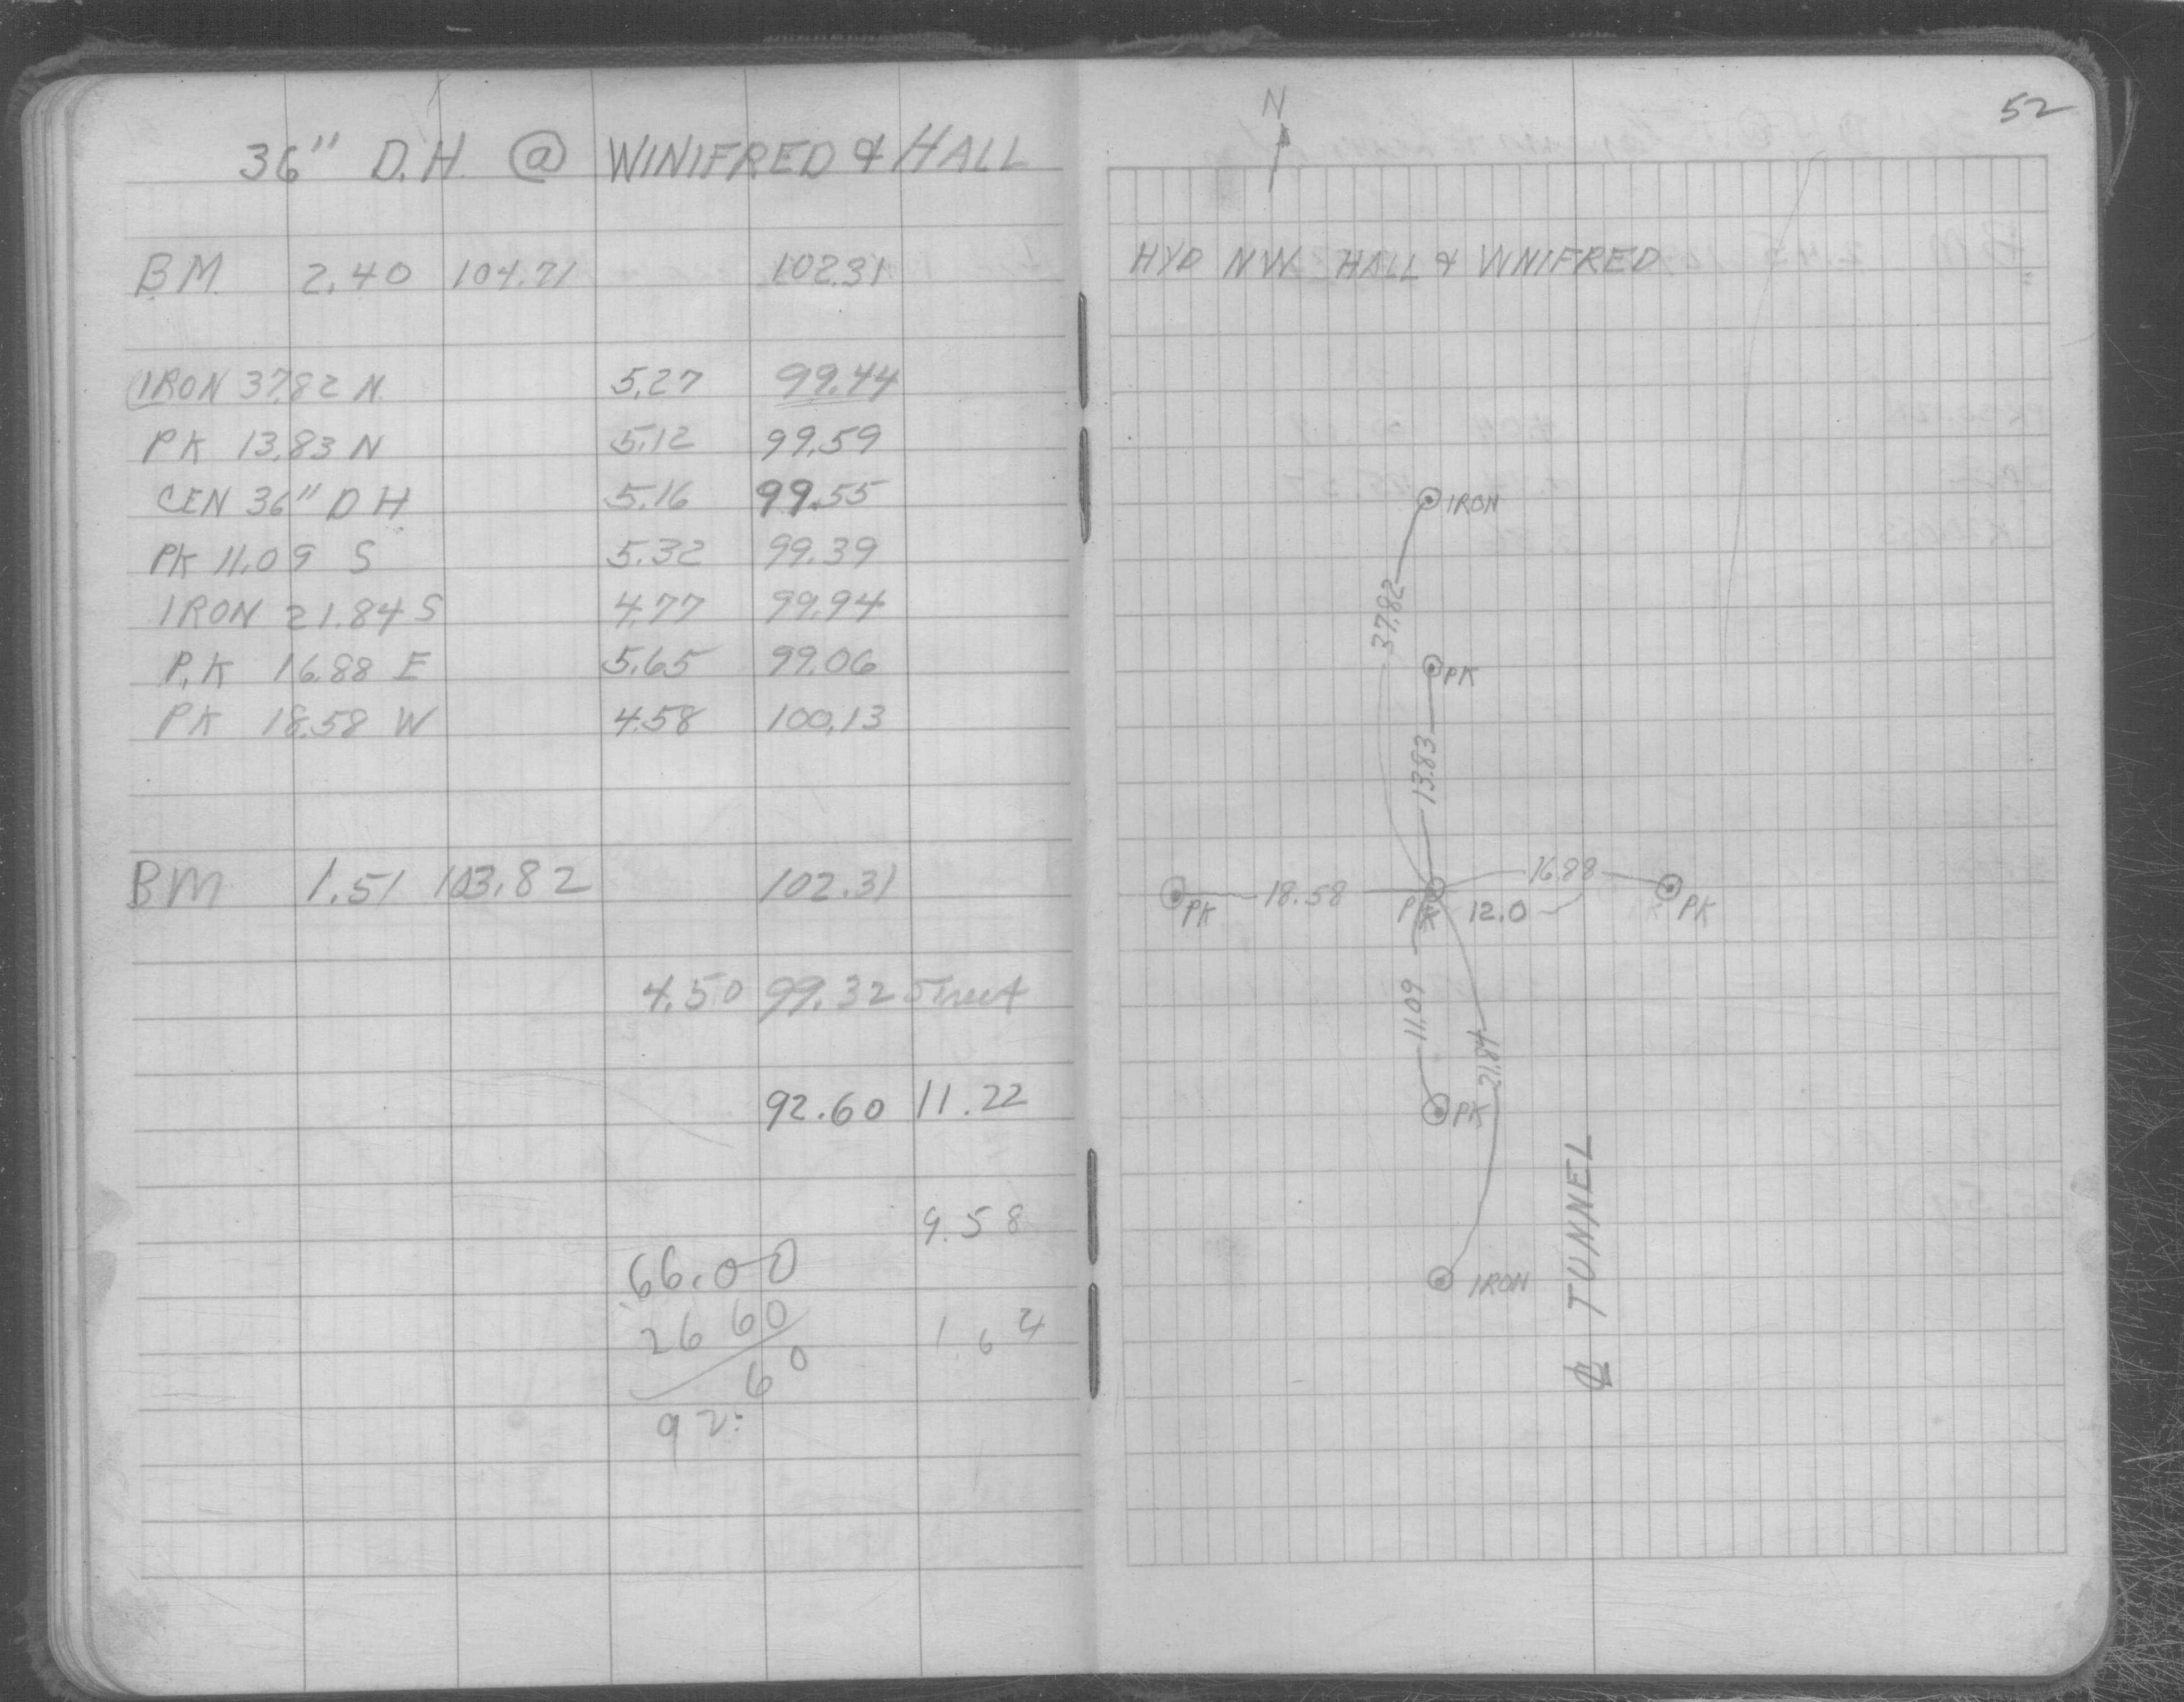 36" D.H. @ WINIFRED & HALL
BM 2.40 104.71 102.31
IRON 37.82 N. 5.27 99.44
PK 13.83 N 5.12 99.59
CEN 36" D H. 5.16 99.55
PK 11.09 S 5.32 99.39
IRON 21.84 S 4.77 99.94
P.K 16.88 E 5.65 99.06
PK 18.58 W 4.58 100.13
BM 1.51 103.82 102.31
4.50 99.32 Street
92.60 11.22
9.58
66.00
26 60 1.64
60
92.
52
N
HYD NW HALL & WNIFRED
IRON
37.82
PK
13.83
16.88
PK 18.58 PK 12.0 PK
11.09
21.84
PK
IRON
℄ TUNNEL